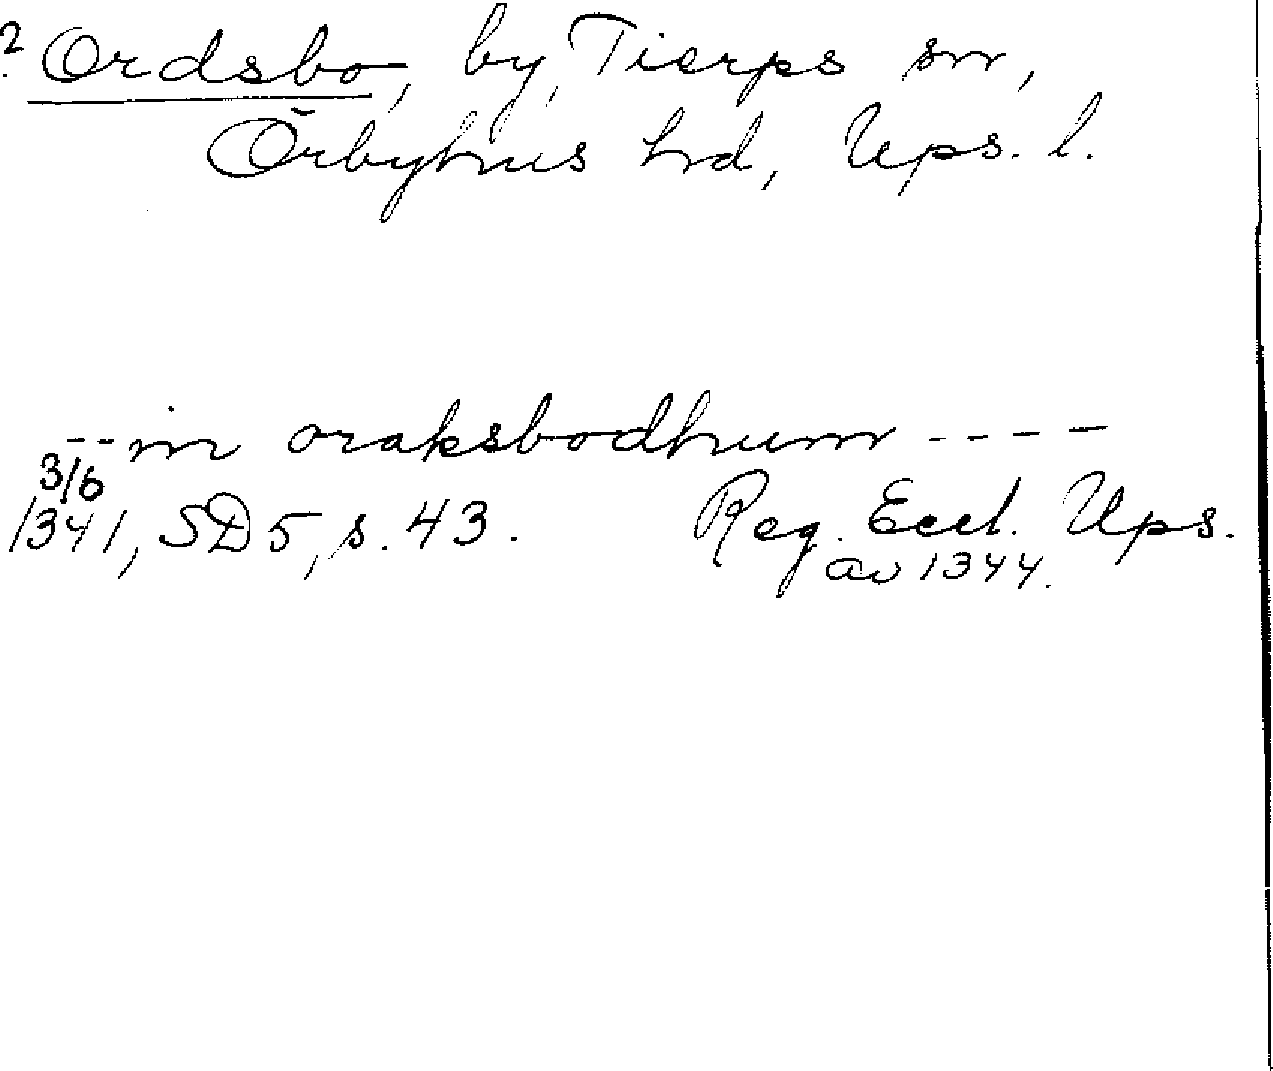 ? Ordsbo, by, Tierps sn,
Örbyhus hd, Ups. l.
--in oraksbodhum ----
3/6
1341, SD 5, s. 43. Reg. Eccl. Ups.
av 1344.